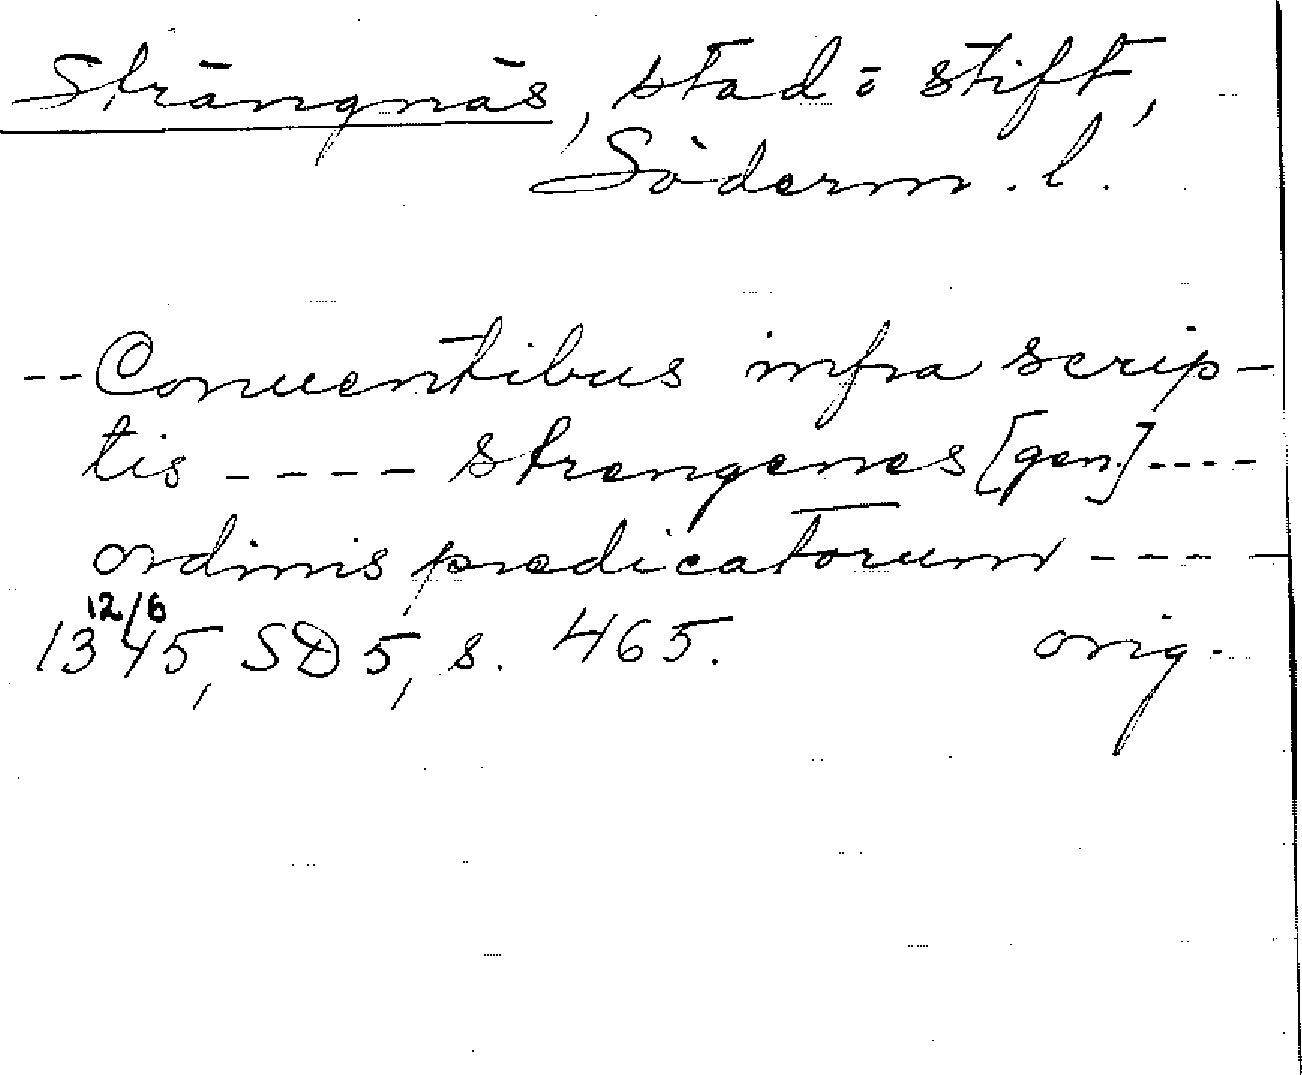 Strängnäs, stad o stift,
Söderm. l.
-- Conuentibus infra scrip-
tis ---- strengenes [gen.] ----
ordinis predicatorum ----
12/6
1345, SD 5, s. 465. orig.